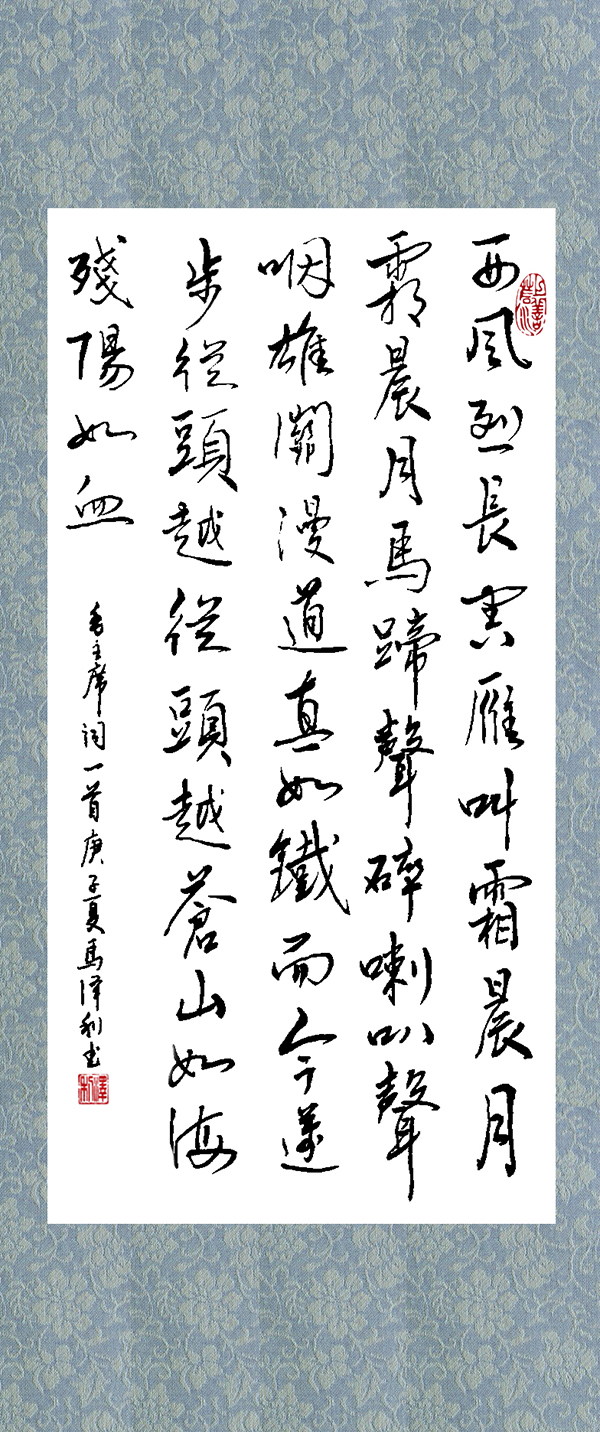 西風烈長空雁叫霜晨月
霜晨月馬蹄聲碎喇叭聲
咽雄關漫道真如鐵而今邁
步從頭越從頭越蒼山如海
殘陽如血
毛主席詞一首庚子夏馬澤利书
澤利